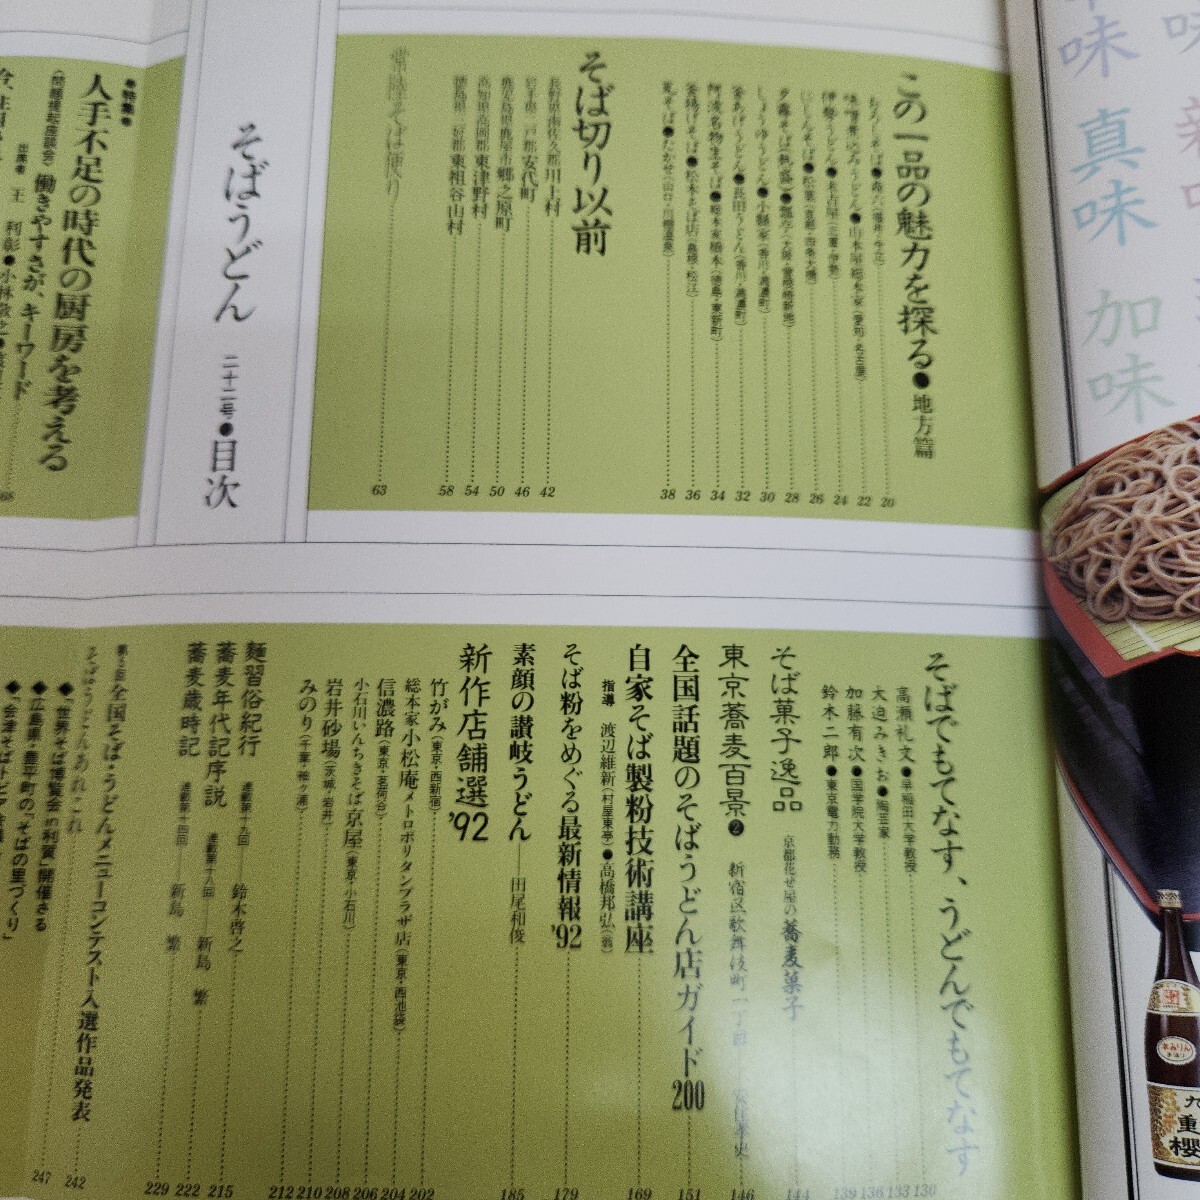 この一品の魅力を探る●地方篇
おろしそば●
20
味噌煮込みうどん●山本屋総本家(愛知・名古屋)
22
伊勢うどん●名古屋(三重・伊勢)
24
にしんそば●松葉(京都・四条大橋)
26
夕霧そば(熱盛)●
28
しょうゆうどん●小縣家(香川・満濃町)
30
釜あげうどん●長田うどん(香川・満濃町)
32
阿波名物生そば●総本家橋本(徳島・東新町)
34
釜揚げそば●松本そば店(島根・松江)
36
鴨そば●たかせ(山口・川棚温泉)
38
そば切り以前
長野県南佐久郡川上村
42
岩手県二戸郡安代町
46
鹿児島県鹿屋市郷之原町
50
高知県高岡郡東津野村
54
徳島県三好郡東祖谷山村
58
常陸そば便り
63
そばうどん
二十二号●目次
●特集●
人手不足の時代の厨房を考える
〈問題提起座談会〉働きやすさが、キーワード
出席者 王 利彰●小林敬之●
68
そばでもてなす、うどんでもてなす
高瀬礼文●早稲田大学教授
130
大迫みきお●陶芸家
133
加藤有次●国学院大学教授
136
鈴木二郎●東京電力勤務
139
そば菓子逸品 京都花せ屋の蕎麦菓子
144
東京蕎麦百景❷ 新宿区歌舞伎町一丁目
146
全国話題のそばうどん店ガイド200
151
自家そば製粉技術講座
指導 渡辺維新(村屋東亭)●高橋邦弘(翁)
169
そば粉をめぐる最新情報'92
179
素顔の讃岐うどん──田尾和俊
185
新作店舗選'92
竹がみ(東京・西新宿)
202
総本家小松庵メトロポリタンプラザ店(東京・西池袋)
204
信濃路(東京・茗荷谷)
206
小石川いんちきそば京屋(東京・小石川)
208
岩井砂場(茨城・岩井)
210
みのり(千葉・袖ヶ浦)
212
麺習俗紀行 連載第十九回──鈴木啓之
215
蕎麦年代記序説 連載第十八回──新島 繁
222
蕎麦歳時記 連載第十四回──新島 繁
229
第2回全国そば・うどんメニューコンテスト入選作品発表
242
そばうどんあれこれ
247
◆「世界そば博覧会in利賀」開催さる
◆広島県・豊平町の「そばの里づくり」
◆「会津そばトピア
味
真味
加味
本みりん
九重櫻